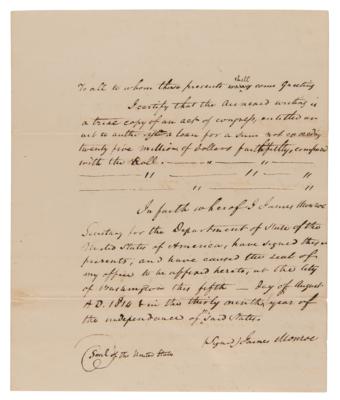 To all to whom these presents shall come Greeting
I certify that the annexed writing is
a true copy of an act of congress, entitled an
act to authorise a loan for a sum not exceeding
twenty five million of dollars faithfully, compared
with the Roll. — " — " — "
— " — " — "
— " — " — "
In faith whereof I James Monroe
Secretary for the Department of State of the
United States of America, have signed these
presents, and have caused the seal of
my office to be affixed hereto, at the City
of Washington this fifth — day of August
A.D. 1814 & in the thirty ninth year of
the independence of said States.
(Signed) James Monroe
(Seal) of the United States